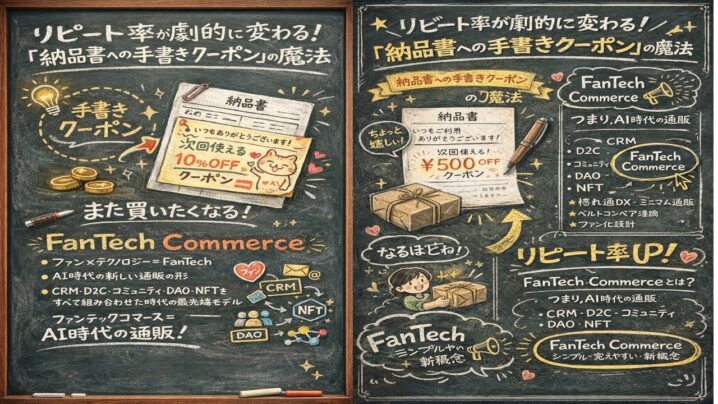 リピート率が劇的に変わる!
「納品書への手書きクーポン」の魔法
手書き
クーポン
納品書
いつもありがとうございます!
次回使える
10%OFF
クーポン
また買いたくなる!
FanTech Commerce
• ファン×テクノロジー=FanTech
• AI時代の新しい通販の形
• CRM・D2C・コミュニティ・DAO・NFTを
すべて組み合わせた時代の最先端モデル
ファンテックコマース=
AI時代の通販!
@
CRM
NFT
DAO
リピート率が劇的に変わる!
「納品書への手書きクーポン」の魔法
納品書への手書きクーポン
の魔法
ちょっと
嬉しい!
納品書
いつもご利用
ありがとうございます!
次回使える!
¥500 OFF
クーポン
FanTech
Commerce
つまり、AI時代の通販
• CRM
• D2C
• コミュニティ
• DAO
• NFT
FanTech
Commerce
なるほどね!
リピート率UP!
FanTech Commerceとは?
つまり、AI時代の通販
• CRM・D2C・コミュニティ
• DAO・NFT
FanTech
新概念
FanTech Commerce